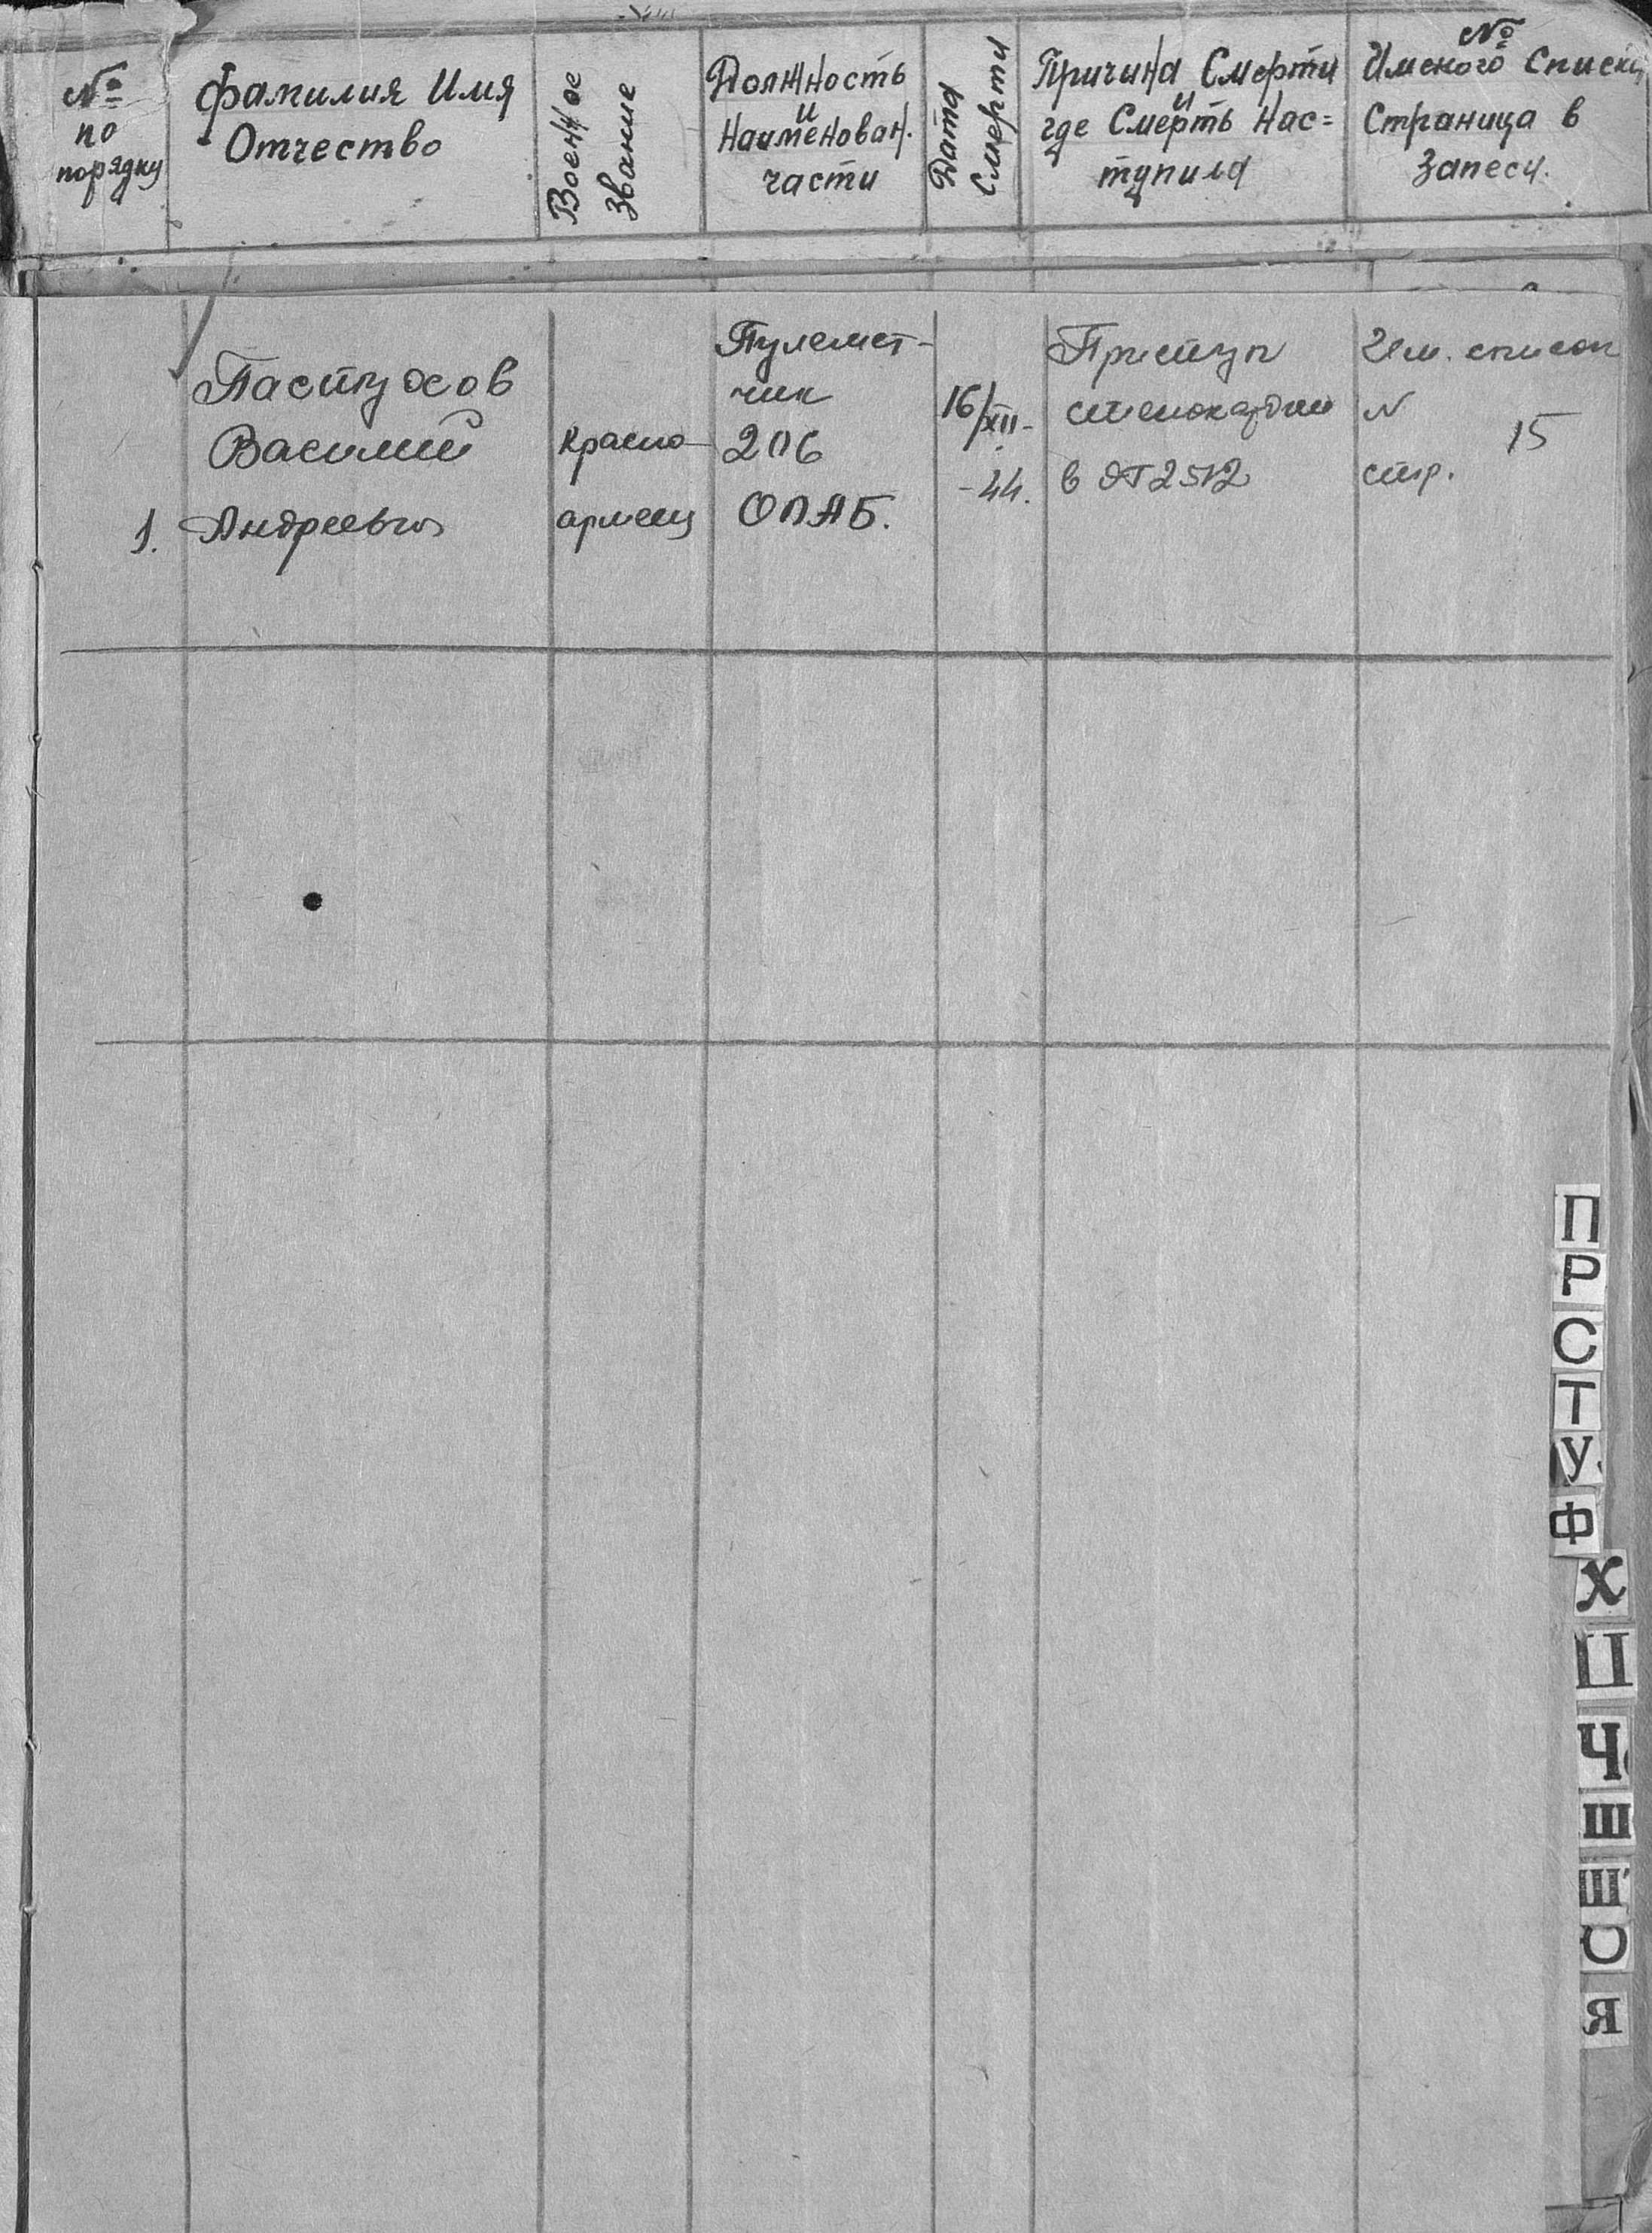 №
по
порядку
Фамилия Имя
Отчество
Военное
звание
Должность
и
Наименован.
части
Дата
Смерти
Причина Смерти
и
где Смерть Нас=
тупила
№
Имсного Списка
Страница в
Запеси.
1.
Пастухов
Василий
Андреевич
красно-
армеец
Пулемет-
чик
206
ОПАБ.
16/XII-
-44.
Приступ
стенокардии
в ЭГ 2512
Им. список
N
стр. 15
П
Р
С
Т
У
Ф
Х
Ц
Ч
Ш
Щ
Ю
Я